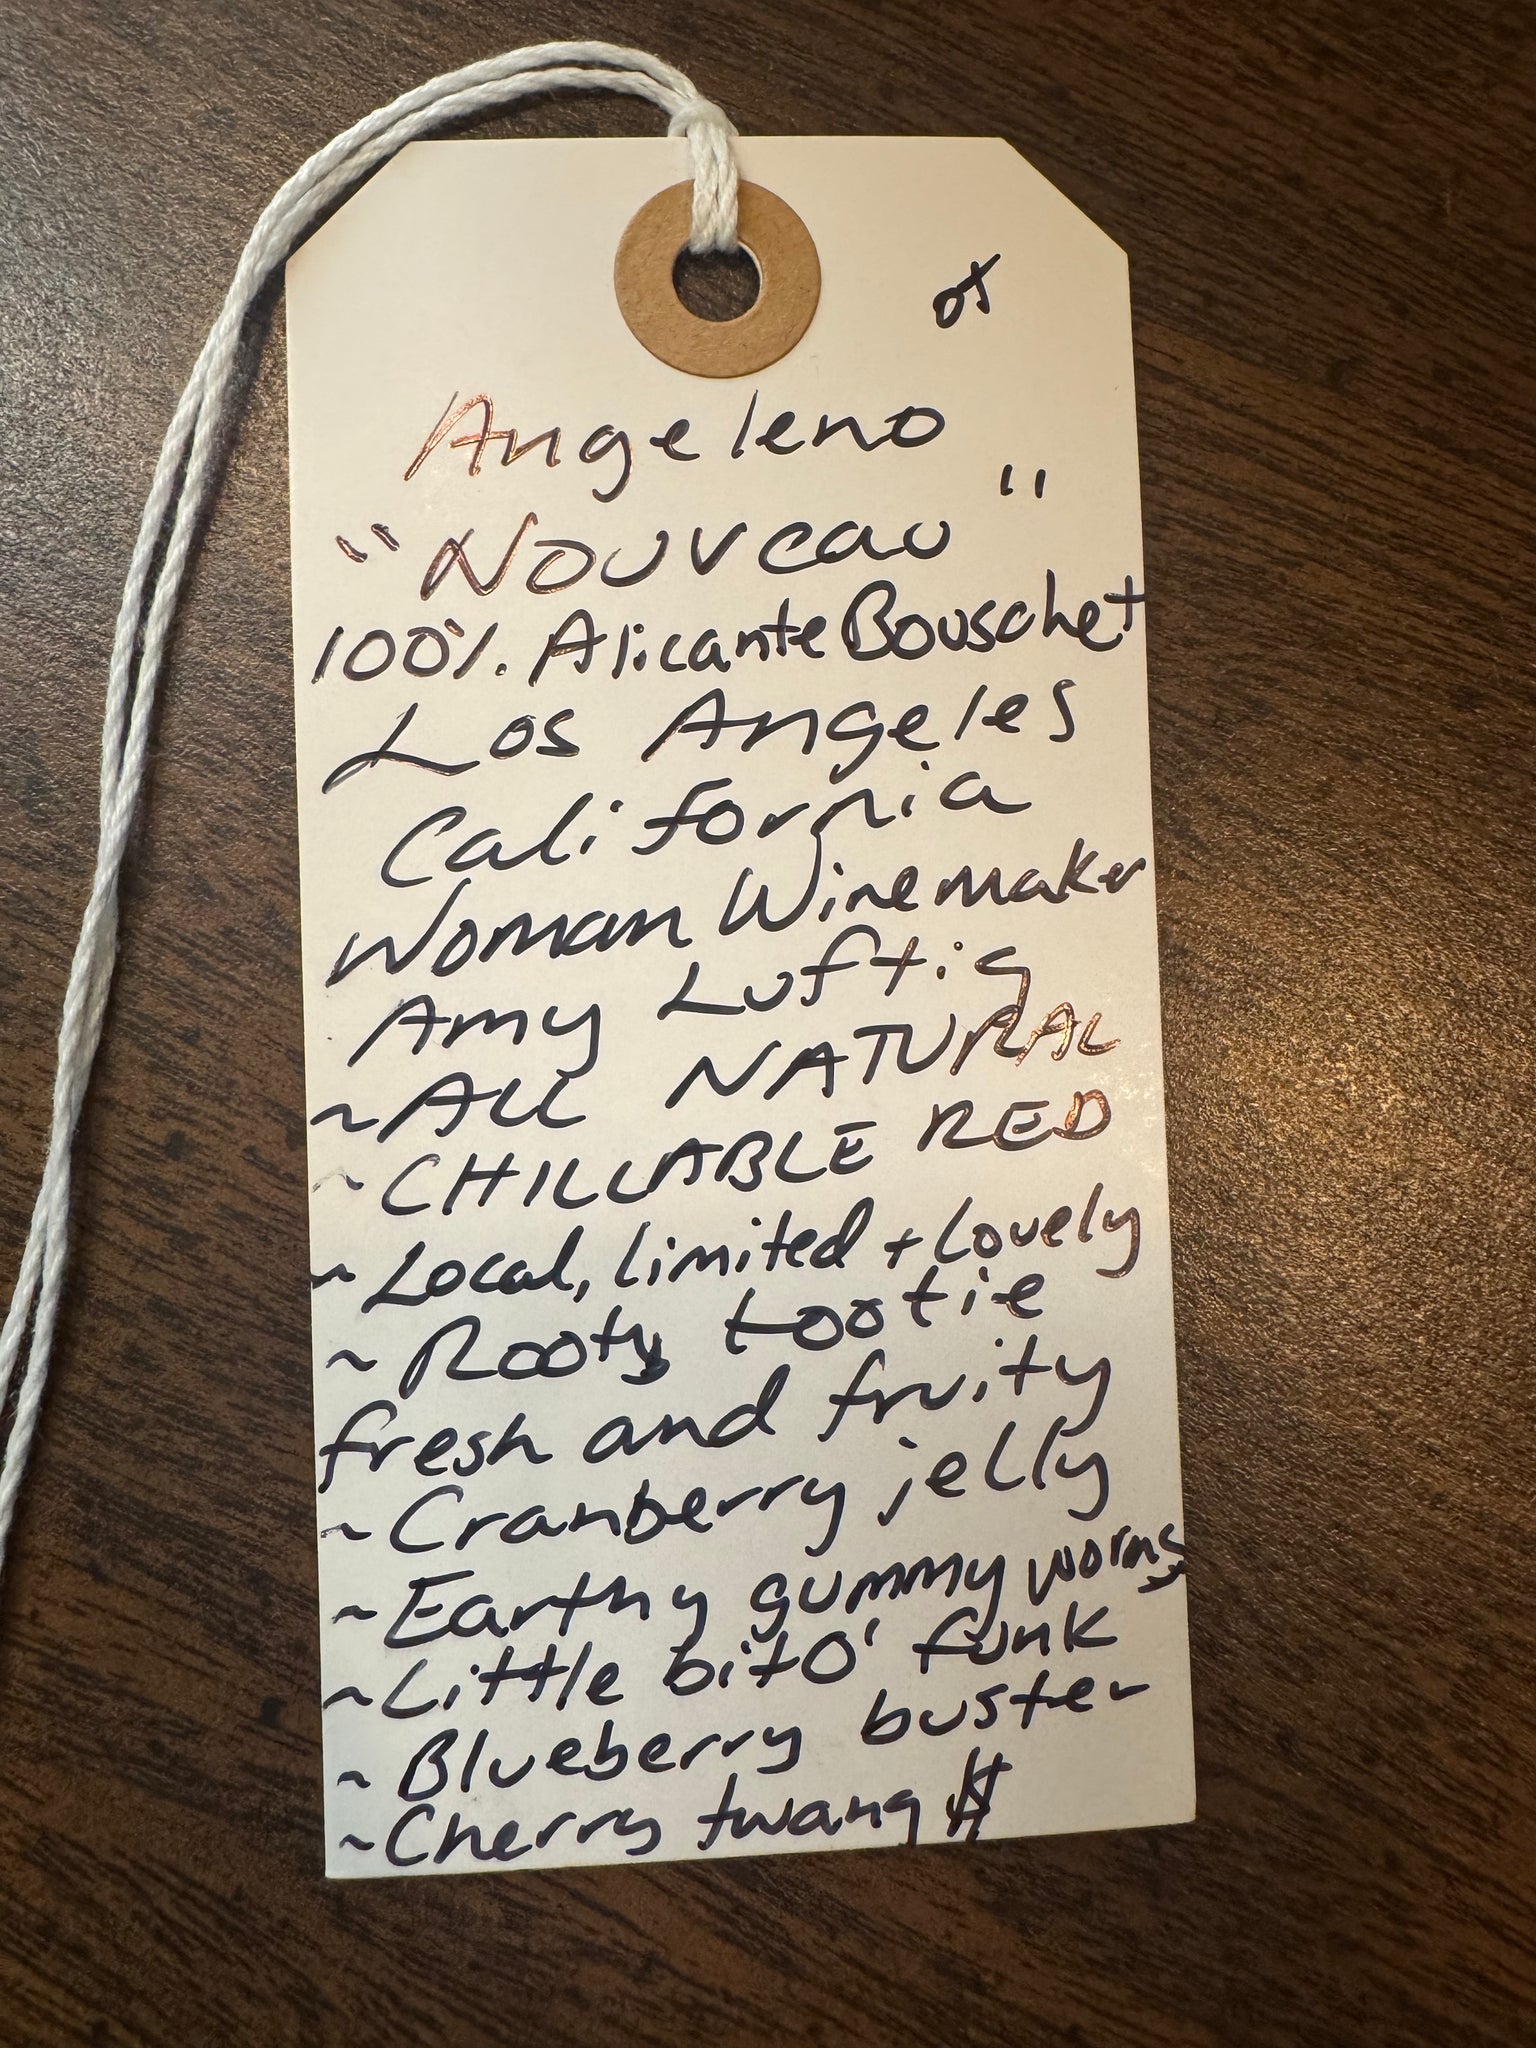 Angeleno
"Nouveau"
100%. Alicante Bouschet
Los Angeles
California
Woman Winemaker
Amy Luftig
~ALL NATURAL
~CHILLABLE RED
~Local, limited + lovely
~Rooty tootie
fresh and fruity
~Cranberry jelly
~Earthy gummy worms
~Little bit O' funk
~Blueberry buster
~Cherry twang